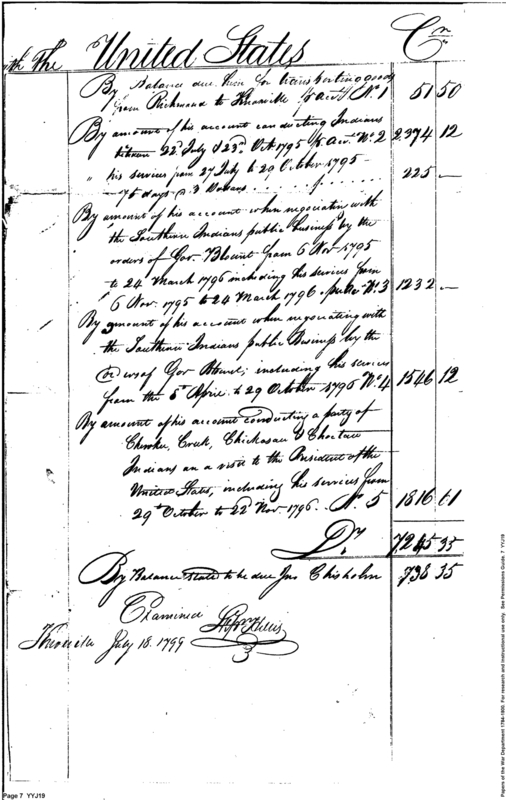 with The United States Cr
By Balance due him for transporting goods
from Richmond to Knoxville ⅌ acct. No. 1 51 50
By amount of his account conducting Indians
between 22d July & 23d Oct. 1795 ⅌ Acct. No. 2 2374 12
" his services from 27 July to 29 October 1795
75 days @ 3 Dollars 225 —
By amount of his account when negociating with
the Southern Indians public business by the
orders of Gov. Blount from 6 Nov. 1795
to 24 March 1796 including his services from
6 Nov. 1795 to 24 March 1796 No. 3 1232 —
By amount of his account when negociating with
the Southern Indians public Business by the
orders of Gov Blount; including his services
from the 5th April to 29 October 1796 No. 4 1546 12
By amount of his account conducting a party of
Cherokee, Creek, Chickasaw & Choctaw
Indians on a visit to the President of the
United States, including his services from
29th October to 22d Nov. 1796 No. 5 1816 61
Drs 7245 35
By Balance to be due Jno Chisholm 738 35
Examined
Knoxville July 18. 1799
Page 7 YYJ19
Papers of the War Department 1784-1800. For research and instructional use only. See Permissions Guide. 7 YYJ19